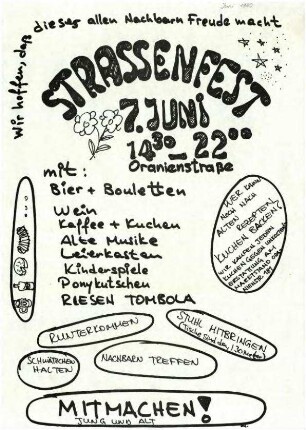 Juni 1982
Wir hoffen, daß dieses allen Nachbarn Freude macht
STRASSENFEST
7. JUNI
14 30 – 22 00
Oranienstraße
mit:
Bier + Bouletten
Wein
Kaffee + Kuchen
Alte Musike
Leierkasten
Kinderspiele
Ponykutschen
RIESEN TOMBOLA
WER KANN
NOCH NACH
ALTEN REZEPTEN
KUCHEN BACKEN?
WIR KAUFEN JEDEN
KUCHEN GEGEN UNKOSTEN
ERSTATTUNG AM
RUNTERKOMMEN
STUHL MITBRINGEN
(Tische sind da, 130 Meter)
SCHWÄTZCHEN
HALTEN
NACHBARN TREFFEN
MITMACHEN!
JUNG UND ALT